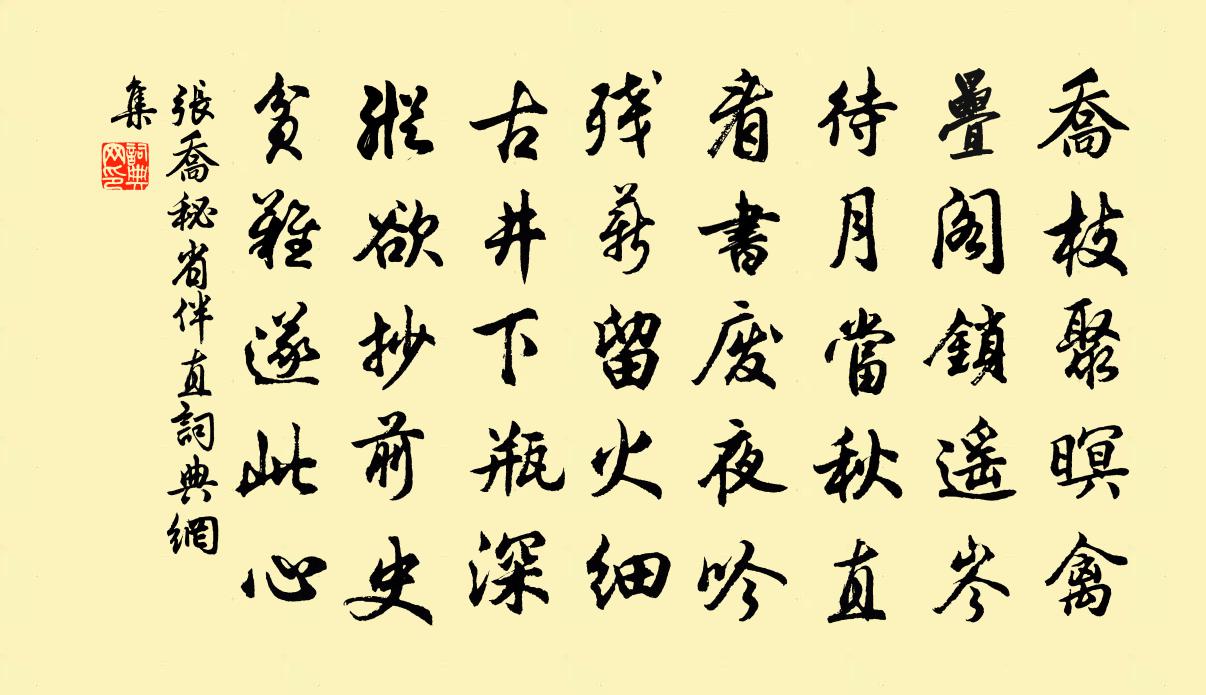 喬枝聚暝禽
疊閣鎖遥岑
待月當秋直
看書廢夜吟
残薪留火細
古井下瓶深
縱欲抄前史
貧難遂此心
張喬秘省伴直詞典網
集
詞典网印